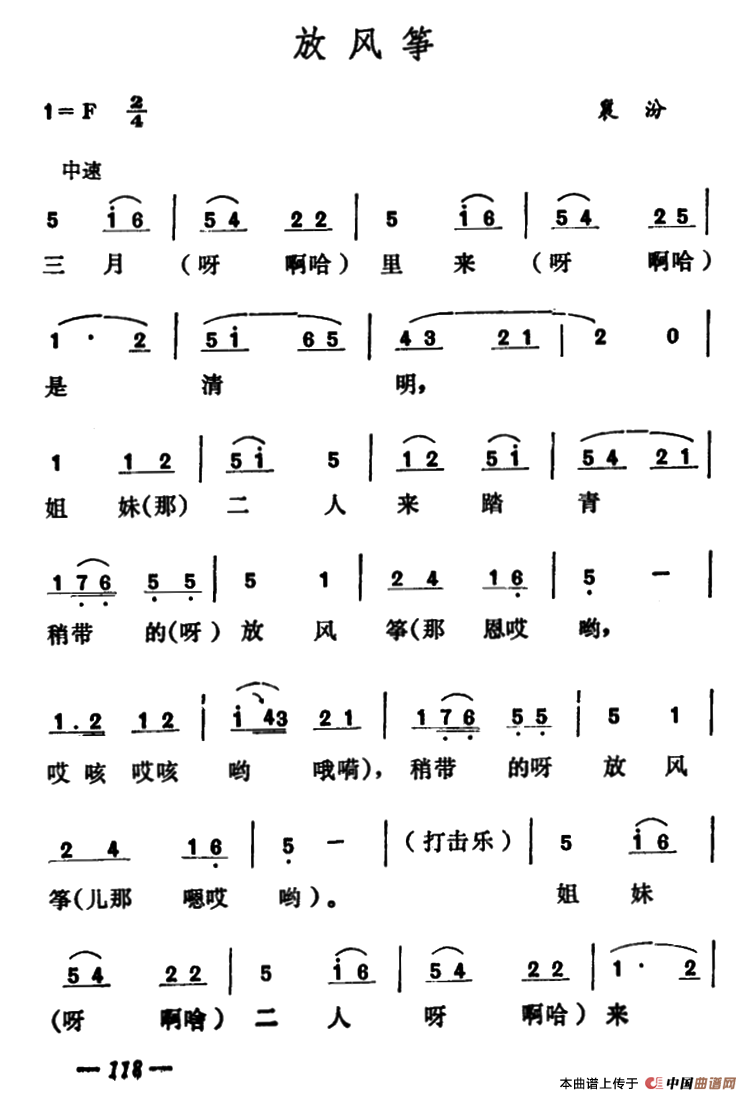 放风筝
1=F 2/4 襄汾
中速
5 i 6 | 5 4 2 2 | 5 i 6 | 5 4 2 5 |
三月(呀 啊哈)里来(呀 啊哈)
1 · 2 | 5 i 6 5 | 4 3 2 1 | 2 0 |
是 清 明，
1 1 2 | 5 i 5 | 1 2 5 i | 5 4 2 1 |
姐妹(那)二人来踏青
1 7 6 5 5 | 5 1 | 2 4 1 6 | 5 — |
稍带的(呀)放风筝(那恩哎哟，
1 . 2 1 2 | i 4 3 2 1 | 1 7 6 5 5 | 5 1 |
哎咳哎咳哟 哦嗬)，稍带的呀放风
2 4 1 6 | 5 — | (打击乐) | 5 i 6 |
筝(儿那 嗯哎哟)。 姐妹
5 4 2 2 | 5 i 6 | 5 4 2 2 | 1 · 2 |
(呀 啊哈)二人呀 啊哈)来
— 118 —
本曲谱上传于 中国曲谱网